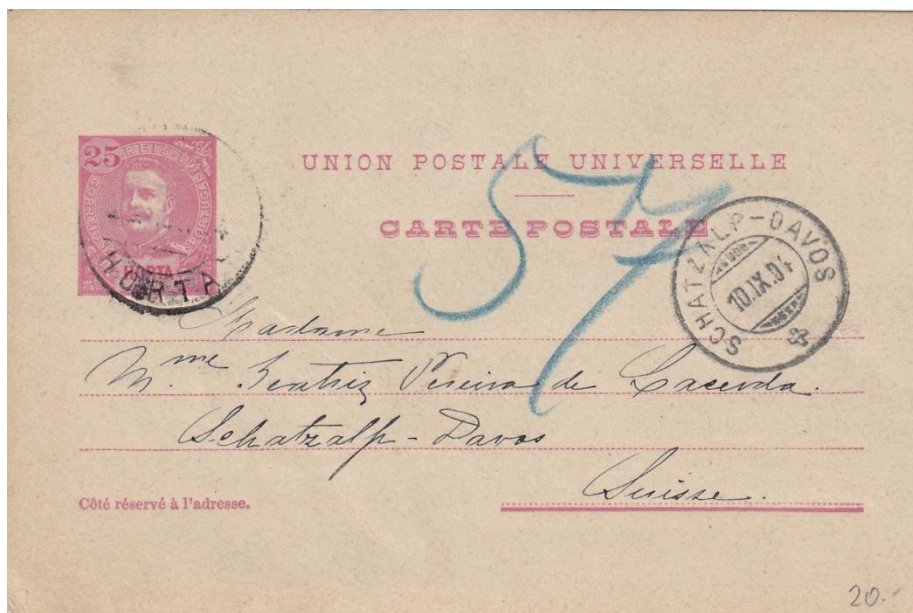 25
HORTA
HORTA
UNION POSTALE UNIVERSELLE
CARTE POSTALE
57
SCHATZALP-DAVOS
10.IX.04
Madame
Mme Beatriz Pereira de Lacerda.
Schatzalp - Davos
Suisse.
Côté réservé à l'adresse.
20.-